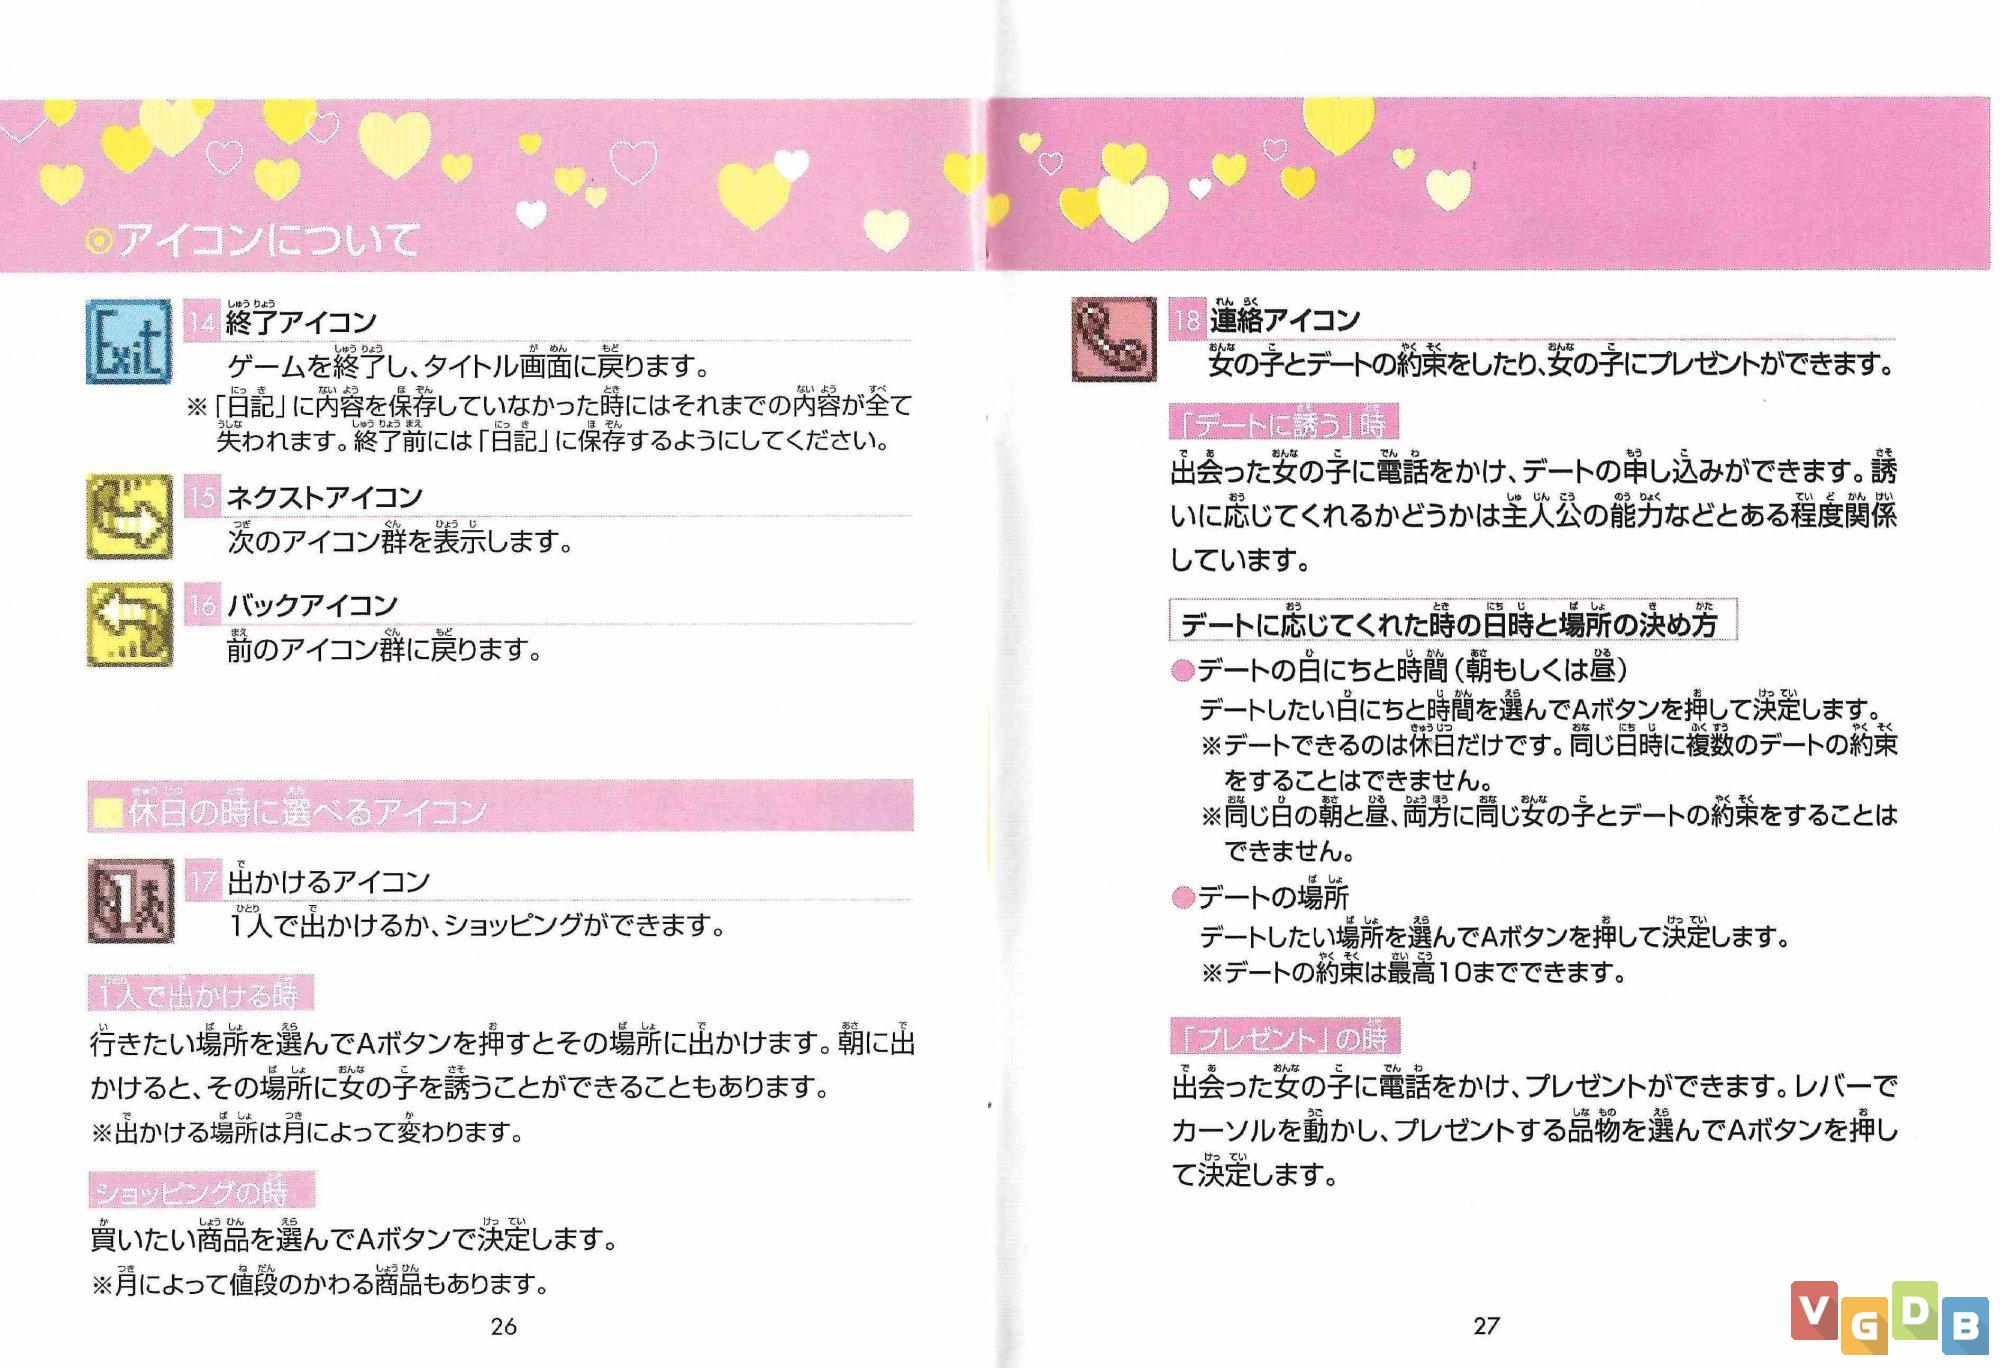 ◎アイコンについて
Exit
14 終了アイコン
ゲームを終了し、タイトル画面に戻ります。
※「日記」に内容を保存していなかった時にはそれまでの内容が全て
失われます。終了前には「日記」に保存するようにしてください。
15 ネクストアイコン
次のアイコン群を表示します。
16 バックアイコン
前のアイコン群に戻ります。
休日の時に選べるアイコン
17 出かけるアイコン
1人で出かけるか、ショッピングができます。
1人で出かける時
行きたい場所を選んでAボタンを押すとその場所に出かけます。朝に出
かけると、その場所に女の子を誘うことができることもあります。
※出かける場所は月によって変わります。
ショッピングの時
買いたい商品を選んでAボタンで決定します。
※月によって値段のかわる商品もあります。
26
18 連絡アイコン
女の子とデートの約束をしたり、女の子にプレゼントができます。
「デートに誘う」時
出会った女の子に電話をかけ、デートの申し込みができます。誘
いに応じてくれるかどうかは主人公の能力などとある程度関係
しています。
デートに応じてくれた時の日時と場所の決め方
●デートの日にちと時間（朝もしくは昼）
デートしたい日にちと時間を選んでAボタンを押して決定します。
※デートできるのは休日だけです。同じ日時に複数のデートの約束
をすることはできません。
※同じ日の朝と昼、両方に同じ女の子とデートの約束をすることは
できません。
●デートの場所
デートしたい場所を選んでAボタンを押して決定します。
※デートの約束は最高10までできます。
「プレゼント」の時
出会った女の子に電話をかけ、プレゼントができます。レバーで
カーソルを動かし、プレゼントする品物を選んでAボタンを押し
て決定します。
27
VGDB